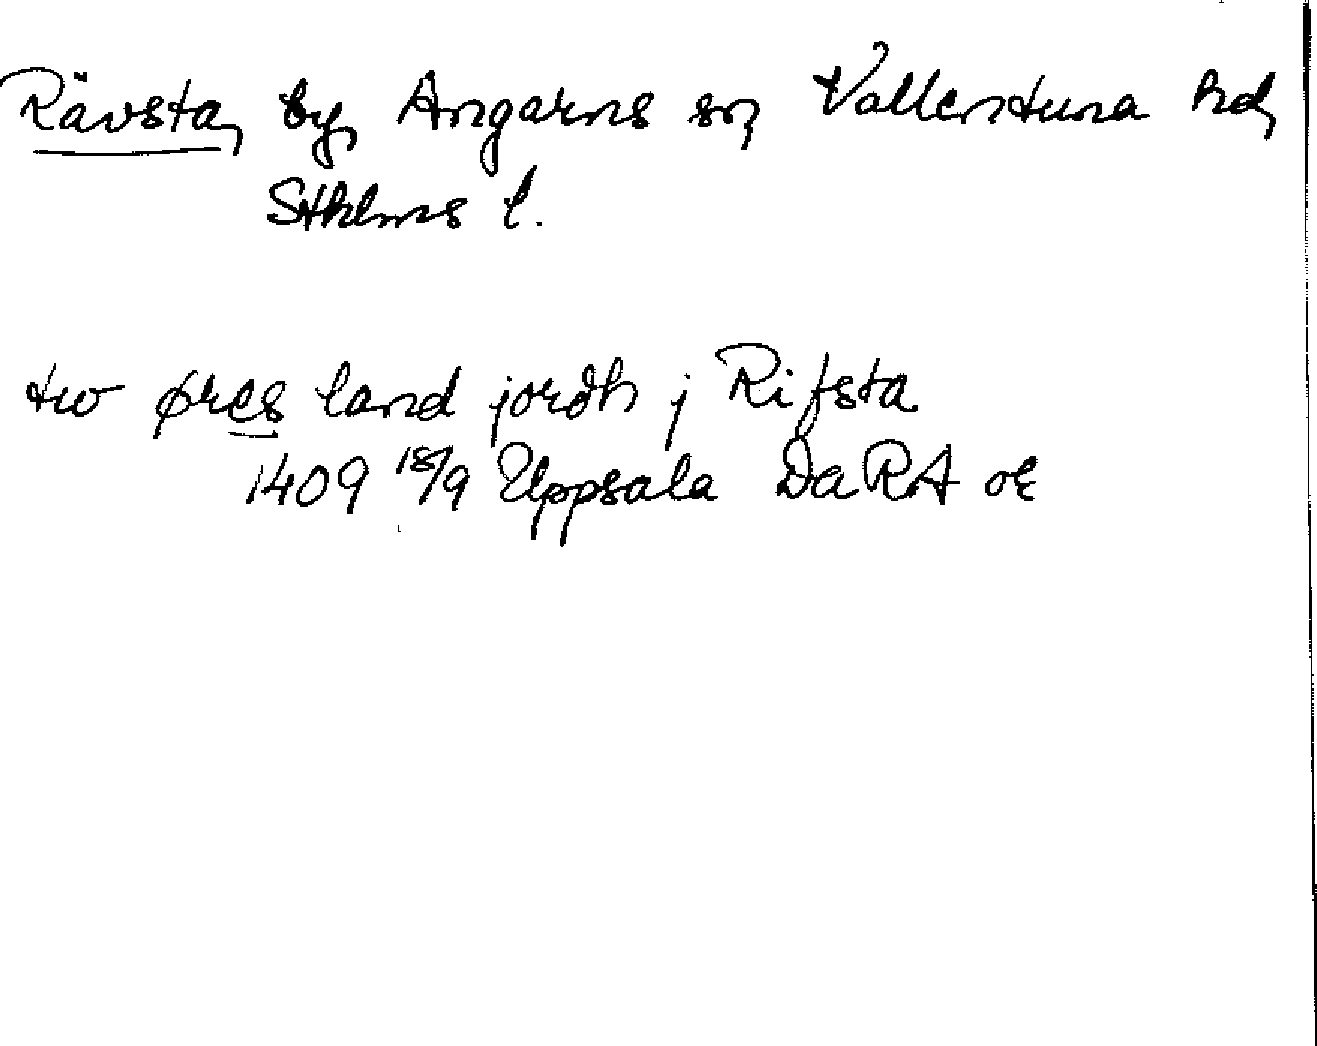 Rävsta, by, Angarns sn, Vallentuna hd,
Sthlms l.
tw øres land jordh j Rifsta
1409 18/9 Uppsala DaRA oE